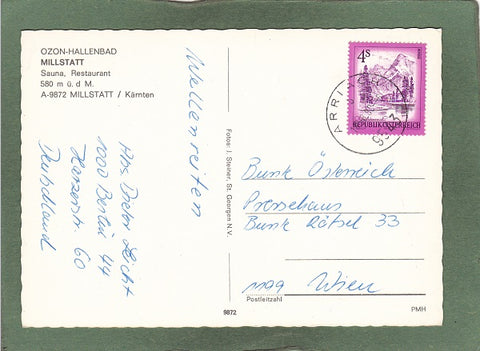 OZON-HALLENBAD
MILLSTATT
Sauna, Restaurant
580 m ü. d M.
A-9872 MILLSTATT / Kärnten
Wellenreiten
1000 Berlin 44
60
Fotos: J. Steiner, St. Georgen N.V.
4S
REPUBLIK ÖSTERREICH
ARRI
Bunk Österreich
Pressehaus
Bunk Rätsel 33
1199 Wien
Postleitzahl
9872
PMH